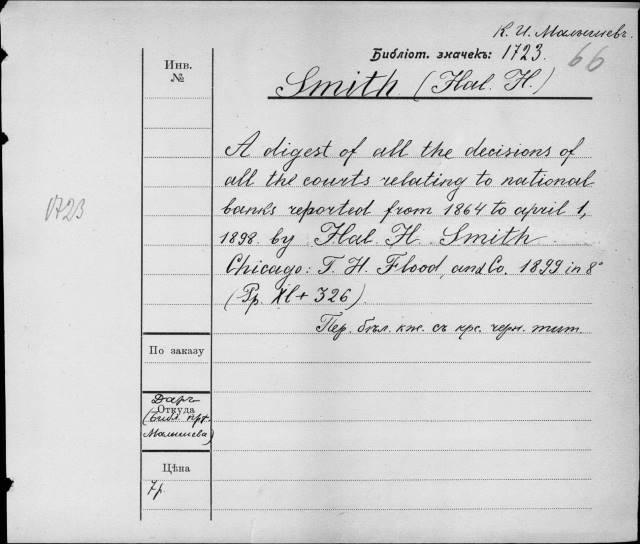 К. И. Малышевъ.
Библіот. значекъ: 1723.
66
Инв.
№
Smith (Hal. H.)
A digest of all the decisions of
all the courts relating to national
banks reported from 1864 to april 1,
1723
1898. by Hal. H. Smith
Chicago: T. H. Flood, and Co. 1899 in 8°
(Pp. XL + 326)
Пер. бѣл. кж. съ кр. черн. тит.
По заказу
Даръ
Откуда
(Библ. прф.
Малышева)
Цѣна
7р.